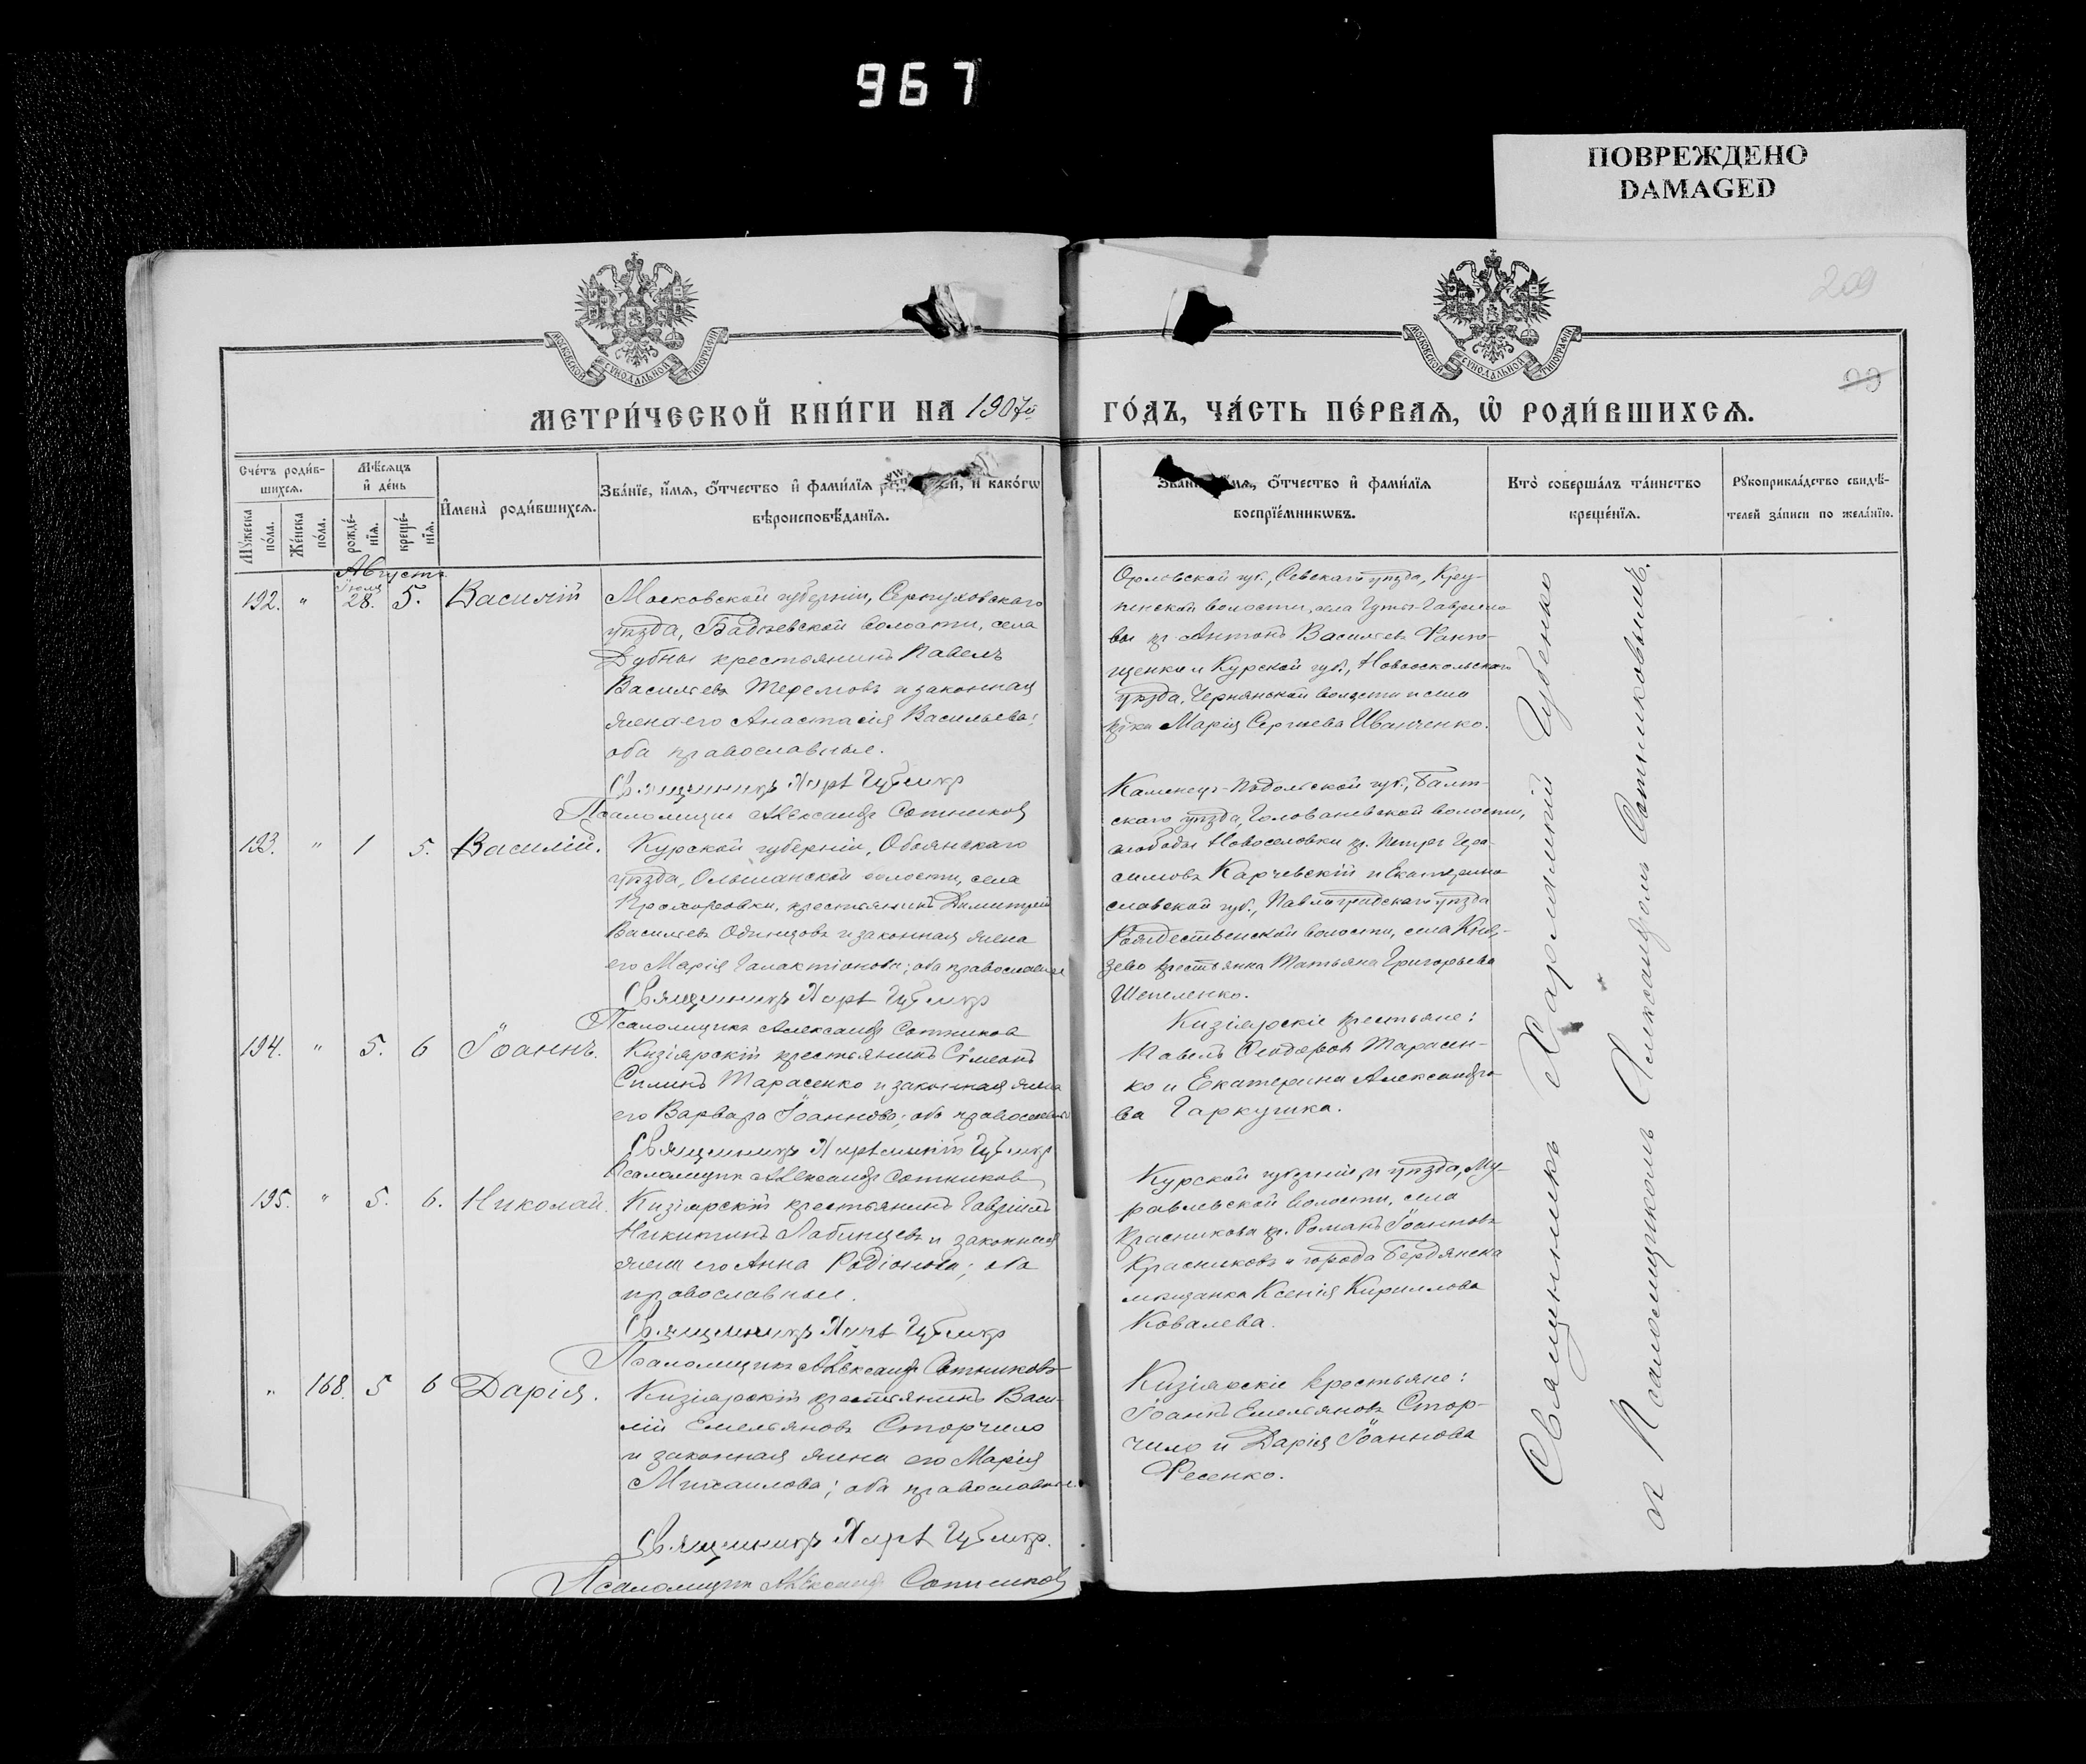 967
ПОВРЕЖДЕНО
DAMAGED
209
МОСКОВСКОЙ СѴНОДАЛЬНОЙ ТИПОГРАФІИ
МОСКОВСКОЙ СѴНОДАЛЬНОЙ ТИПОГРАФІИ
МЕТРИ́ЧЕСКОЙ КНИ́ГИ НА 1907й ГО́ДЪ, ЧА́СТЬ ПЕ́РВАѦ, Ѡ҆ РОДИ́ВШИХСѦ.
Сче́тъ роди́в-
шихсѧ.
Мѣ́сѧцъ
и҆ де́нь
Мꙋ́жеска
по́ла.
Же́нска
по́ла.
рожде́-
нїѧ.
креще́-
нїѧ.
И҆мена̀ роди́вшихсѧ.
Зва́нїе, и҆́мѧ, ѻ҆́тчество и҆ фами́лїѧ и҆ како́гѡ
вѣроисповѣ́данїѧ.
Зва́нїе, и҆́мѧ, ѻ҆́тчество и҆ фами́лїѧ
воспрїе́мникѡвъ.
Кто̀ соверша́лъ та́инство
креще́нїѧ.
Рꙋкоприкла́дство свидѣ́-
телей за́писи по жела́нїю.
Августъ
192. " Іюля 28. 5. Василій
Московской губерніи, Серпуховскаго
уѣзда, волости, села
Дубны крестьянинъ Павелъ
Васильевъ Теремовъ и законная
жена его Анастасія Васильева;
оба православные.
Священникъ Харл Губенко
Псаломщикъ Александръ Сотниковъ
Орловской губ., Севскаго уѣзда,
волости, села
кр. Антонъ Васильевъ
и Курской губ., Новооскольскаго
уѣзда, Чернянской волости и села
кр-ка Марія Сергіева Иванченко.
193. " 1 5. Василій.
Курской губерніи, Обоянскаго
уѣзда, Ольшанской волости, села
Прохоровки, крестьянинъ Димитрій
Васильевъ Одинцовъ и законная жена
его Марія Галактіонова; оба православные
Священникъ Харл Губенко
Псаломщикъ Александръ Сотниковъ
Каменецъ-Подольской губ., Балт-
скаго уѣзда, Голованевской волости,
слободы Новоселовки кр. Петръ Гера-
симовъ Карчевскій и Екатерино-
славской губ., Павлоградскаго уѣзда
Рождественской волости, села Кня-
зево крестьянка Татьяна Григорьева
Шепеленко.
194. " 5. 6 Іоаннъ.
Кизіярскій крестьянинъ Сѵмеонъ
Силинъ Тарасенко и законная жена
его Варвара Іоаннова; оба православные
Священникъ Харлампій Губенко
Псаломщикъ Александръ Сотниковъ
Кизіярскіе крестьяне:
Павелъ Ѳеодоровъ Тарасен-
ко и Екатерина Александро-
ва Гаркушка.
195. " 5. 6. Николай.
Кизіярскій крестьянинъ Гавріилъ
Никитинъ Лабинцевъ и законная
жена его Анна Родіонова; оба
православные.
Священникъ Харл Губенко
Псаломщикъ Александръ Сотниковъ
Курской губерніи и уѣзда, Му-
равлевской волости, села
Красникова кр. Романъ Іоанновъ
Красниковъ и города Бердянска
мѣщанка Ксенія Кириллова
Ковалева.
" 168. 5 6 Дарія.
Кизіярскій крестьянинъ Васи-
лій Емельяновъ Сторчило
и законная жена его Марія
Михаилова; оба православные
Священникъ Харл Губенко.
Псаломщикъ Александръ Сотниковъ
Кизіярскіе крестьяне:
Іоаннъ Емельяновъ Стор-
чило и Дарія Іоаннова
Фесенко.
Священникъ Харлампій Губенко
съ Псаломщикомъ Александромъ Сотниковымъ.